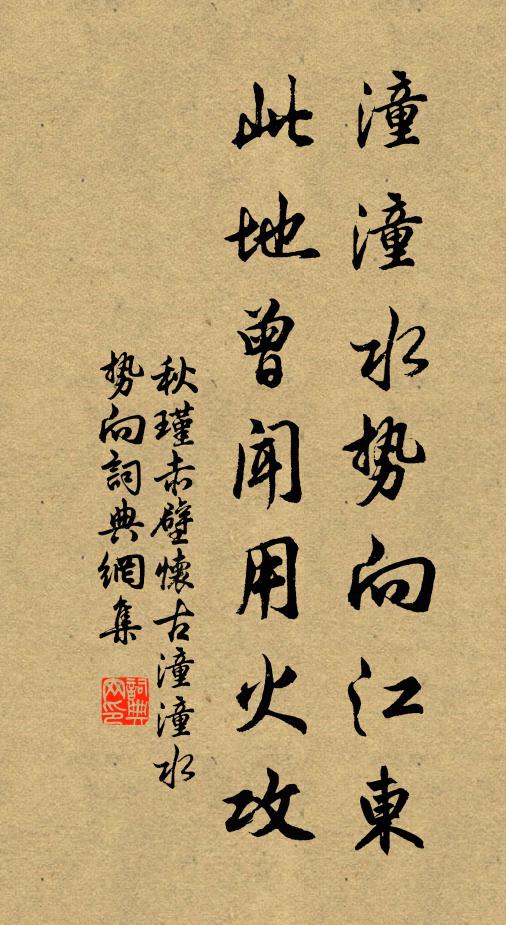 潼潼水势向江東
此地曾闻用火攻
秋瑾赤壁懷古潼潼水
势向詞典網集
詞典
网印